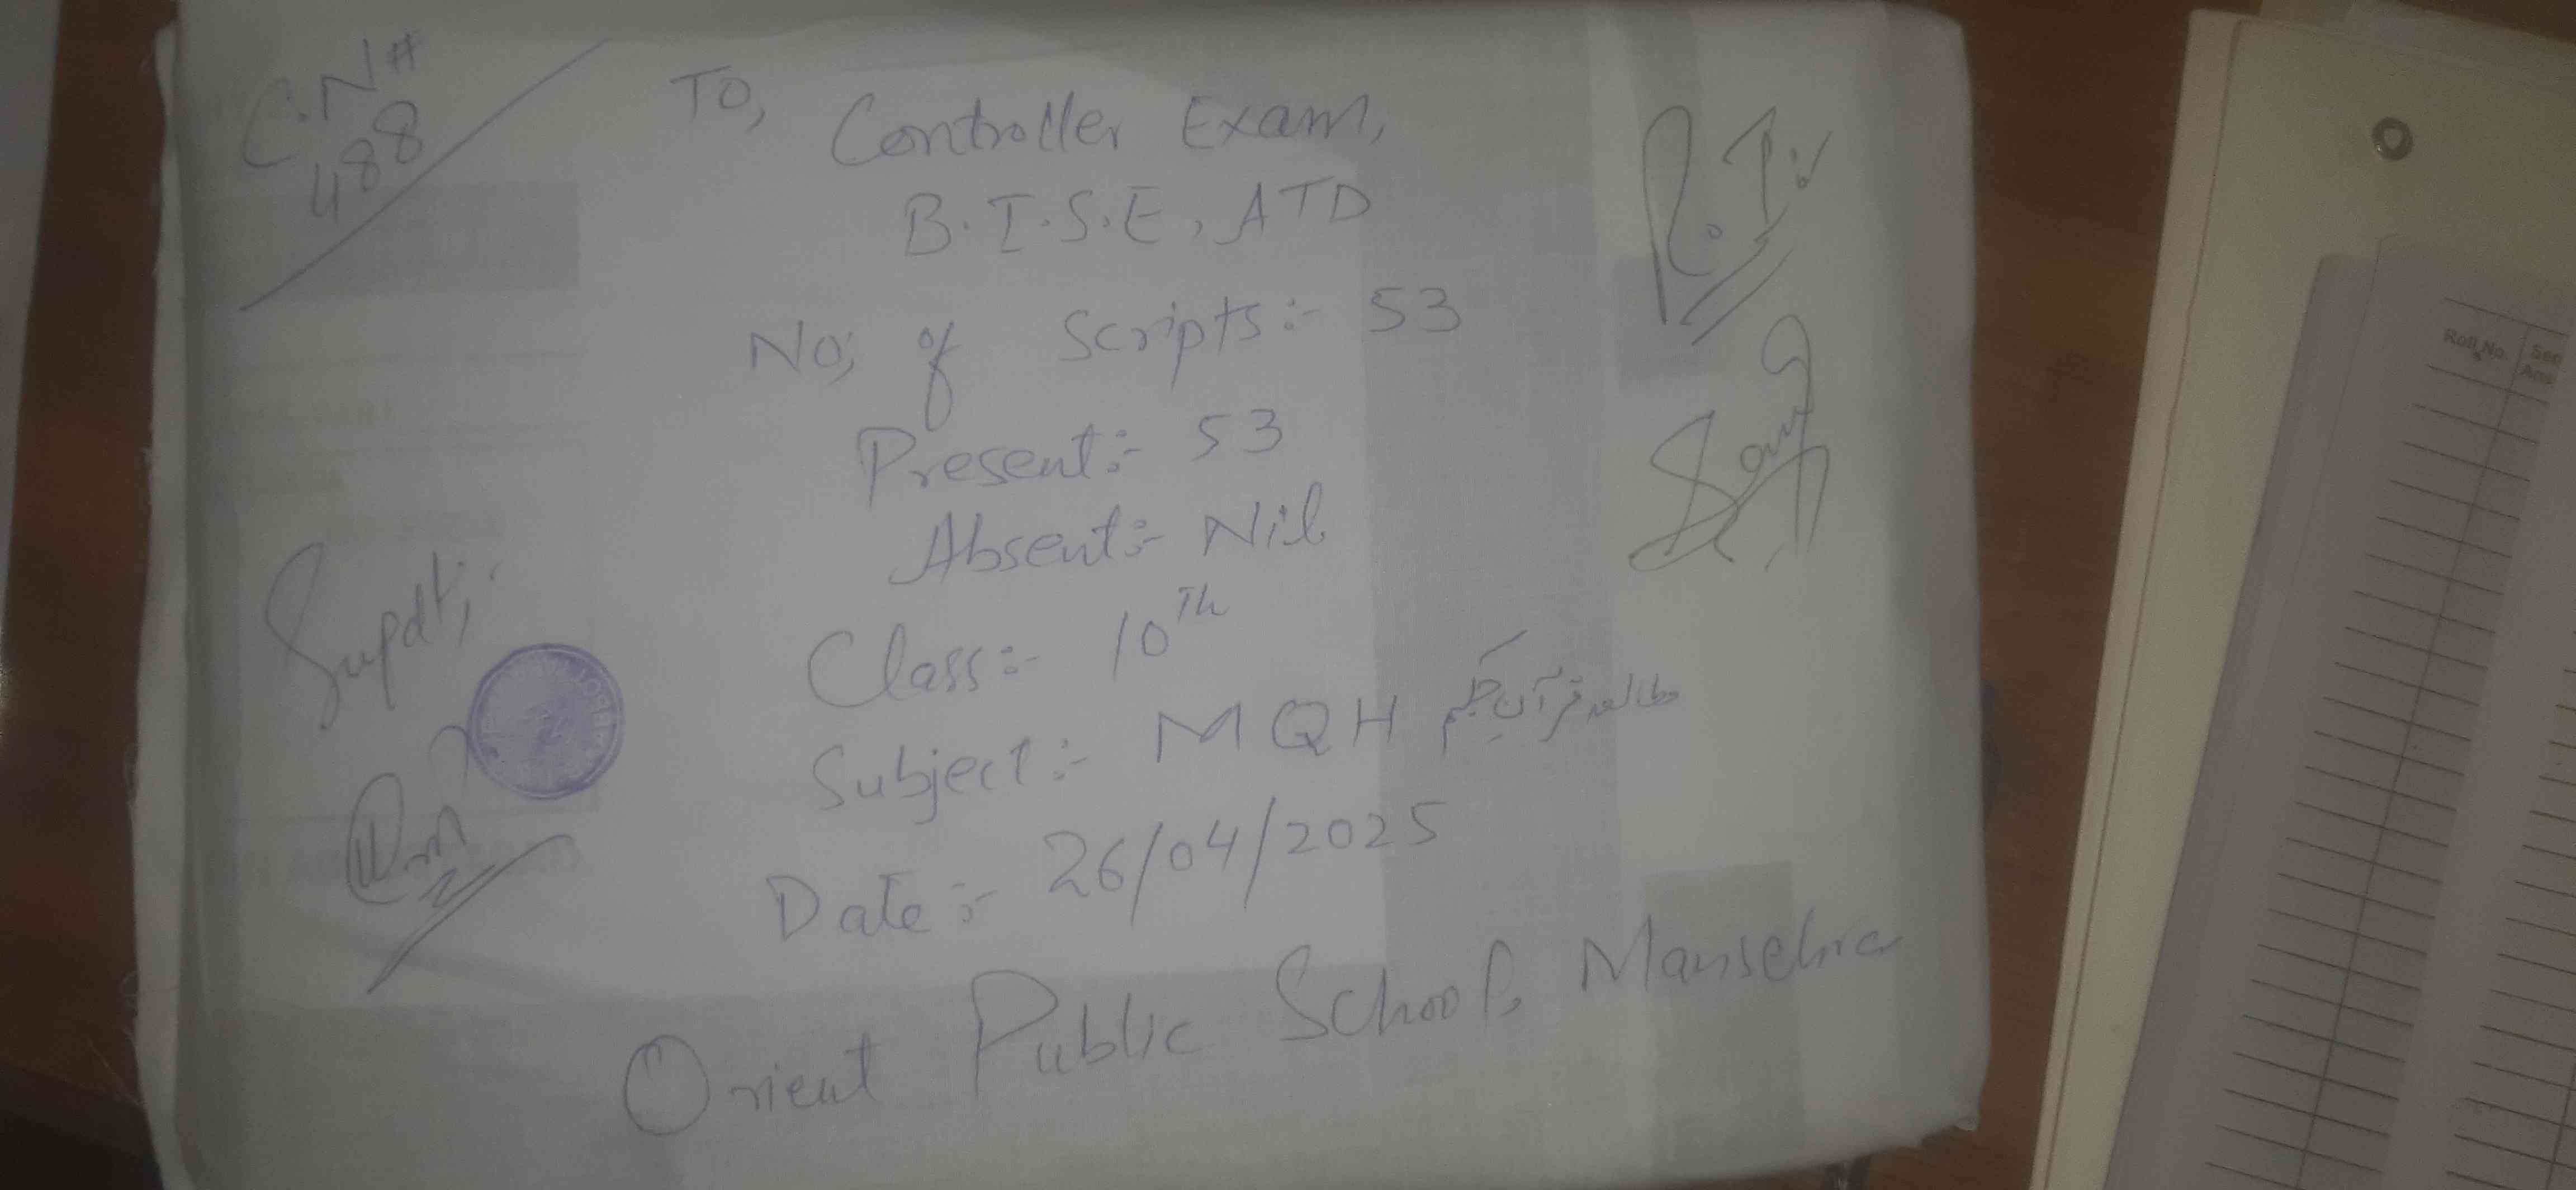 C.N#
488
To,
Controller Exam,
B.I.S.E, ATD
No; of Scripts:- 53
Present:- 53
Absent:- Nil
Class:- 10Th
Subject:- MQH مطالعہ قرآن حکیم
Date:- 26/04/2025
Orient Public School, Mansehra
Supdt;
Roll No.